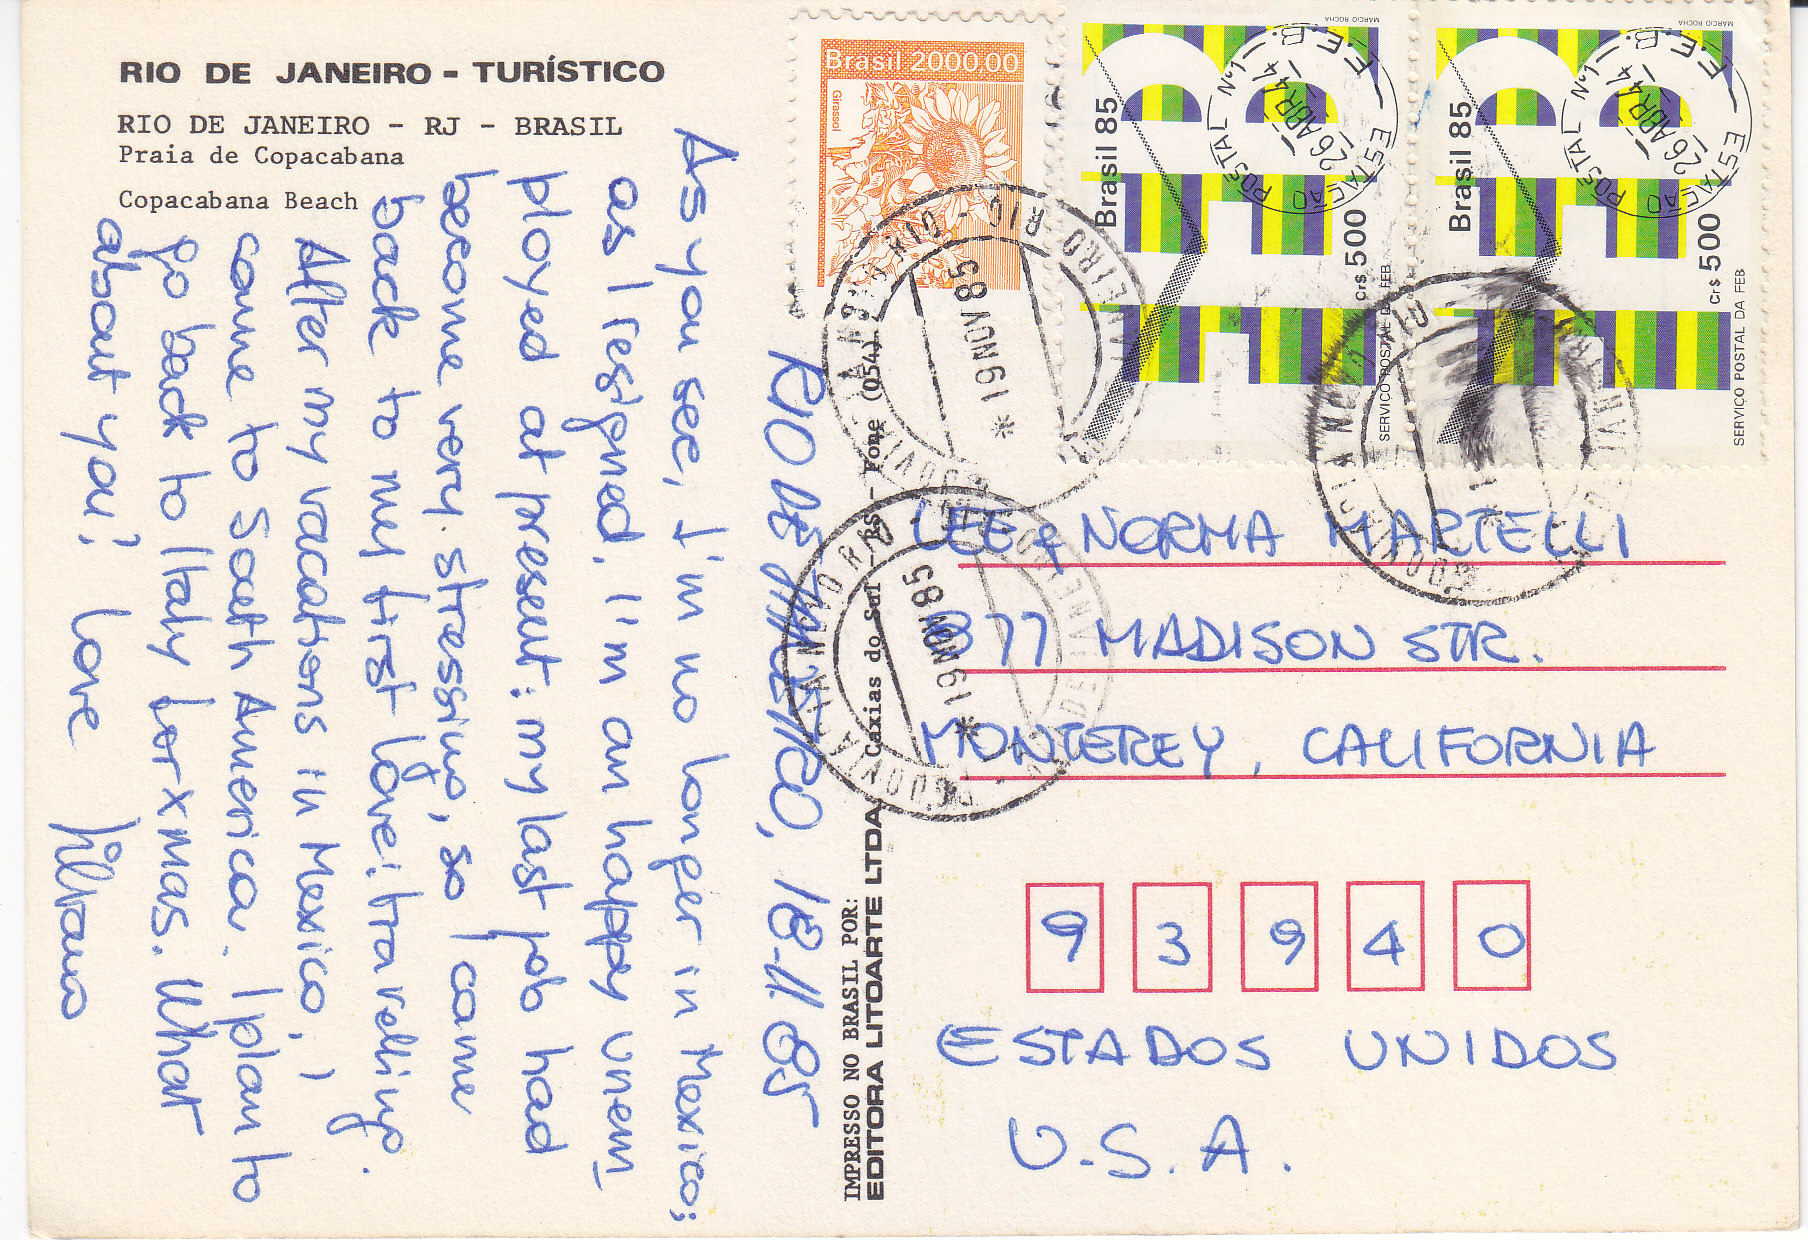 RIO DE JANEIRO - TURÍSTICO
RIO DE JANEIRO - RJ - BRASIL
Praia de Copacabana
Copacabana Beach
RIO DE JANEIRO, 18-11-85
As you see, I'm no longer in Mexico;
as I resigned. I'm an happy unem_
ployed at present: my last job had
become very stressing, so I came
back to my first love: travelling.
After my vacations in Mexico, I
came to South America. I plan to
go back to Italy for x mas. What
about you? love
IMPRESSO NO BRASIL POR:
EDITORA LITOARTE LTDA
Caxias do Sul - RS - Fone (054)
Brasil 2000.00
Girassol
MARCIO ROCHA
Brasil 85
Cr$ 500
SERVIÇO POSTAL DA FEB
ESTAÇÃO POSTAL Nº1 F.E.B.
26 ABR 44
MARCIO ROCHA
Brasil 85
Cr$ 500
SERVIÇO POSTAL DA FEB
ESTAÇÃO POSTAL Nº1 F.E.B.
26 ABR 44
19 NOV 85
19 NOV 85
LEE & NORMA MARTELLI
877 MADISON STR.
MONTEREY, CALIFORNIA
9 3 9 4 0
ESTADOS UNIDOS
U.S.A.